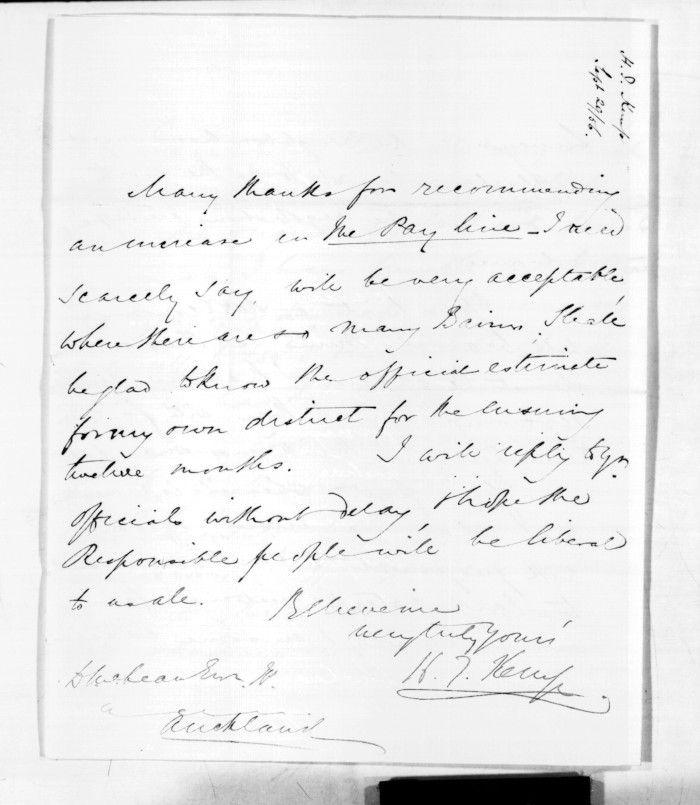 H. T. Kemp
Sept 20/56.
Many thanks for recommending
an increase in the Pay line - I need
scarcely say, will be very acceptable
where there are so many Bairns, Shall
be glad to know the official estimate
for my own district for the ensuing
twelve months. I will reply to yr.
officials without delay, & hope the
Responsible people will be liberal
to us all. Believe me
very truly yours
H. T. Kemp
D McLean Esqr.
Auckland